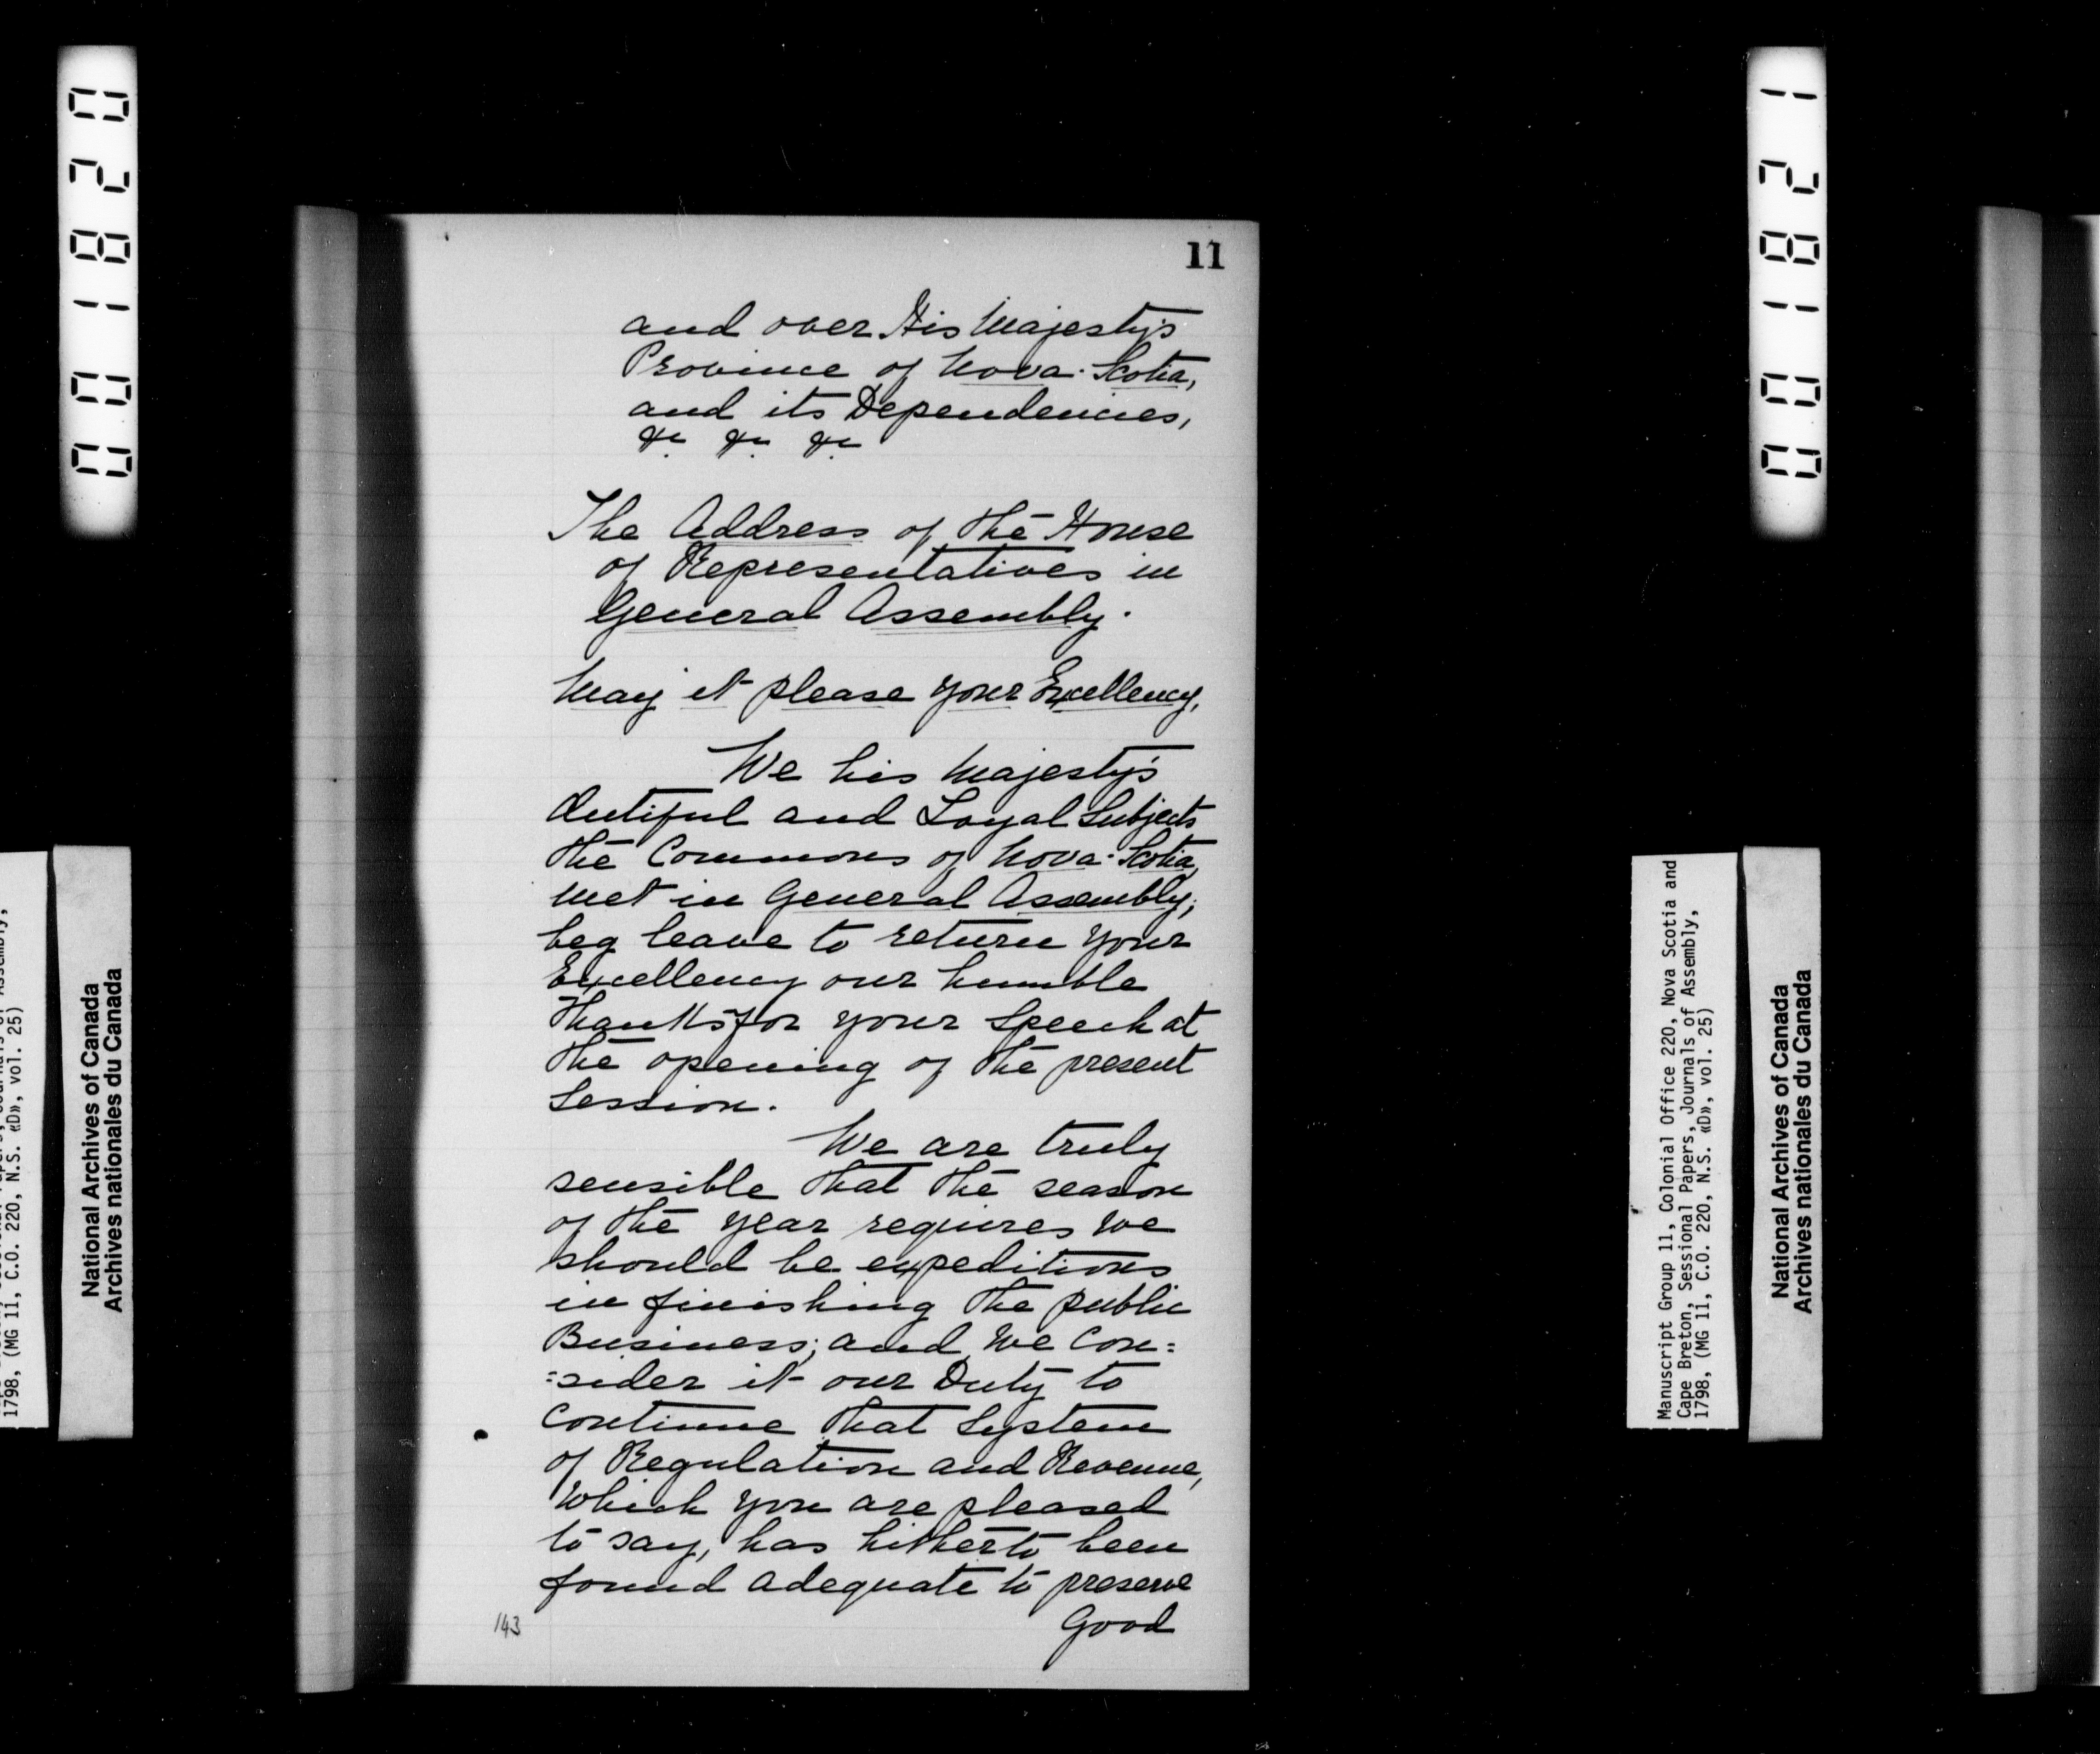 001820
1798, (MG 11, C.O. 220, N.S. «D», vol. 25)
National Archives of Canada
Archives nationales du Canada
11
and over His Majesty's
Province of Nova-Scotia,
and its Dependencies,
&c. &c. &c.
The Address of the House
of Representatives in
General Assembly.
May it please your Excellency,
We his Majesty's
dutiful and Loyal Subjects
the Commons of Nova-Scotia,
met in General Assembly,
beg leave to return your
Excellency our humble
Thanks for your Speech at
the opening of the present
Session.
We are truly
sensible that the season
of the year requires we
should be expeditious
in finishing the public
Business; and we Con=
=sider it our Duty to
continue that System
of Regulation and Revenue,
which you are pleased
to say, has hitherto been
found adequate to preserve
Good
143
001821
Manuscript Group 11, Colonial Office 220, Nova Scotia and
Cape Breton, Sessional Papers, Journals of Assembly,
1798, (MG 11, C.O. 220, N.S. «D», vol. 25)
National Archives of Canada
Archives nationales du Canada